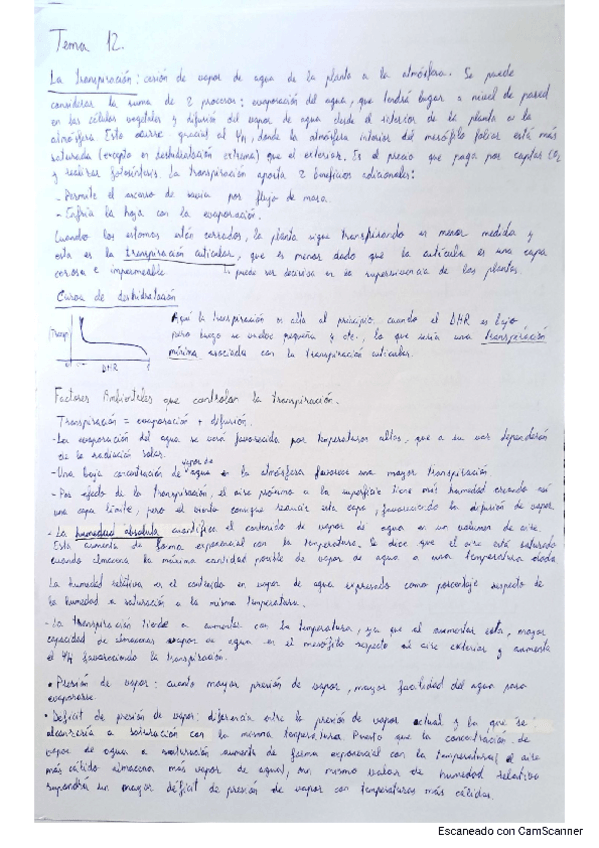 Tema 12.
La transpiración: cesión de vapor de agua de la planta a la atmósfera. Se puede
considerar la suma de 2 procesos: evaporación del agua, que tendrá lugar a nivel de pared
en las células vegetales y difusión del vapor de agua desde el interior de la planta a la
atmósfera. Esto ocurre gracias al Ψ, donde la atmósfera interior del mesófilo foliar está más
saturada (excepto en deshidratación extrema) que el exterior. Es el precio que paga por captar CO2
y realizar fotosíntesis. La transpiración aporta 2 beneficios adicionales:
- Permite el ascenso de savia por flujo de masa.
- Enfría la hoja con la evaporación.
Cuando los estomas están cerrados, la planta sigue transpirando en menor medida y
esta es la transpiración cuticular, que es menor dado que la cutícula es una capa
cerosa e impermeable ↳ puede ser decisiva en la supervivencia de las plantas.
Curva de deshidratación
Transp
DHR
Aquí la transpiración es alta al principio, cuando el DHR es bajo
pero luego se vuelve pequeña y cte, lo que sería una transpiración
mínima asociada con la transpiración cuticular.
Factores Ambientales que controlan la transpiración.
Transpiración = evaporación + difusión.
- La evaporación del agua se verá favorecida por temperaturas altas, que a su vez dependerán
de la radiación solar.
- Una baja concentración de vapor de agua en la atmósfera favorece una mayor transpiración.
- Por efecto de la transpiración, el aire próximo a la superficie tiene más humedad creando así
una capa límite, pero el viento consigue reducir esta capa, favoreciendo la difusión de vapor
- La humedad absoluta cuantifica el contenido de vapor de agua en un volumen de aire.
Esta aumenta de forma exponencial con la temperatura. Se dice que el aire está saturado
cuando almacena la máxima cantidad posible de vapor de agua a una temperatura dada
La humedad relativa es el contenido en vapor de agua expresado como porcentaje respecto de
la humedad a saturación a la misma temperatura.
- La transpiración tiende a aumentar con la temperatura, ya que al aumentar esta, mayor
capacidad de almacenar vapor de agua en el mesófilo respecto al aire exterior y aumenta
el Ψ favoreciendo la transpiración.
• Presión de vapor: cuanto mayor presión de vapor, mayor facilidad del agua para
evaporarse.
• Déficit de presión de vapor: diferencia entre la presión de vapor actual y la que se
alcanzaría a saturación con la misma temperatura. Puesto que la concentración de
vapor de agua a saturación aumenta de forma exponencial con la temperatura (el aire
más cálido almacena más vapor de agua), un mismo valor de humedad relativa
supondrá un mayor déficit de presión de vapor con temperaturas más cálidas.
Escaneado con CamScanner